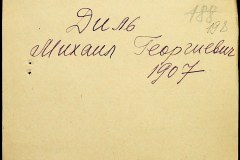 188
198
Диль
Михаил Георгиевич
1907